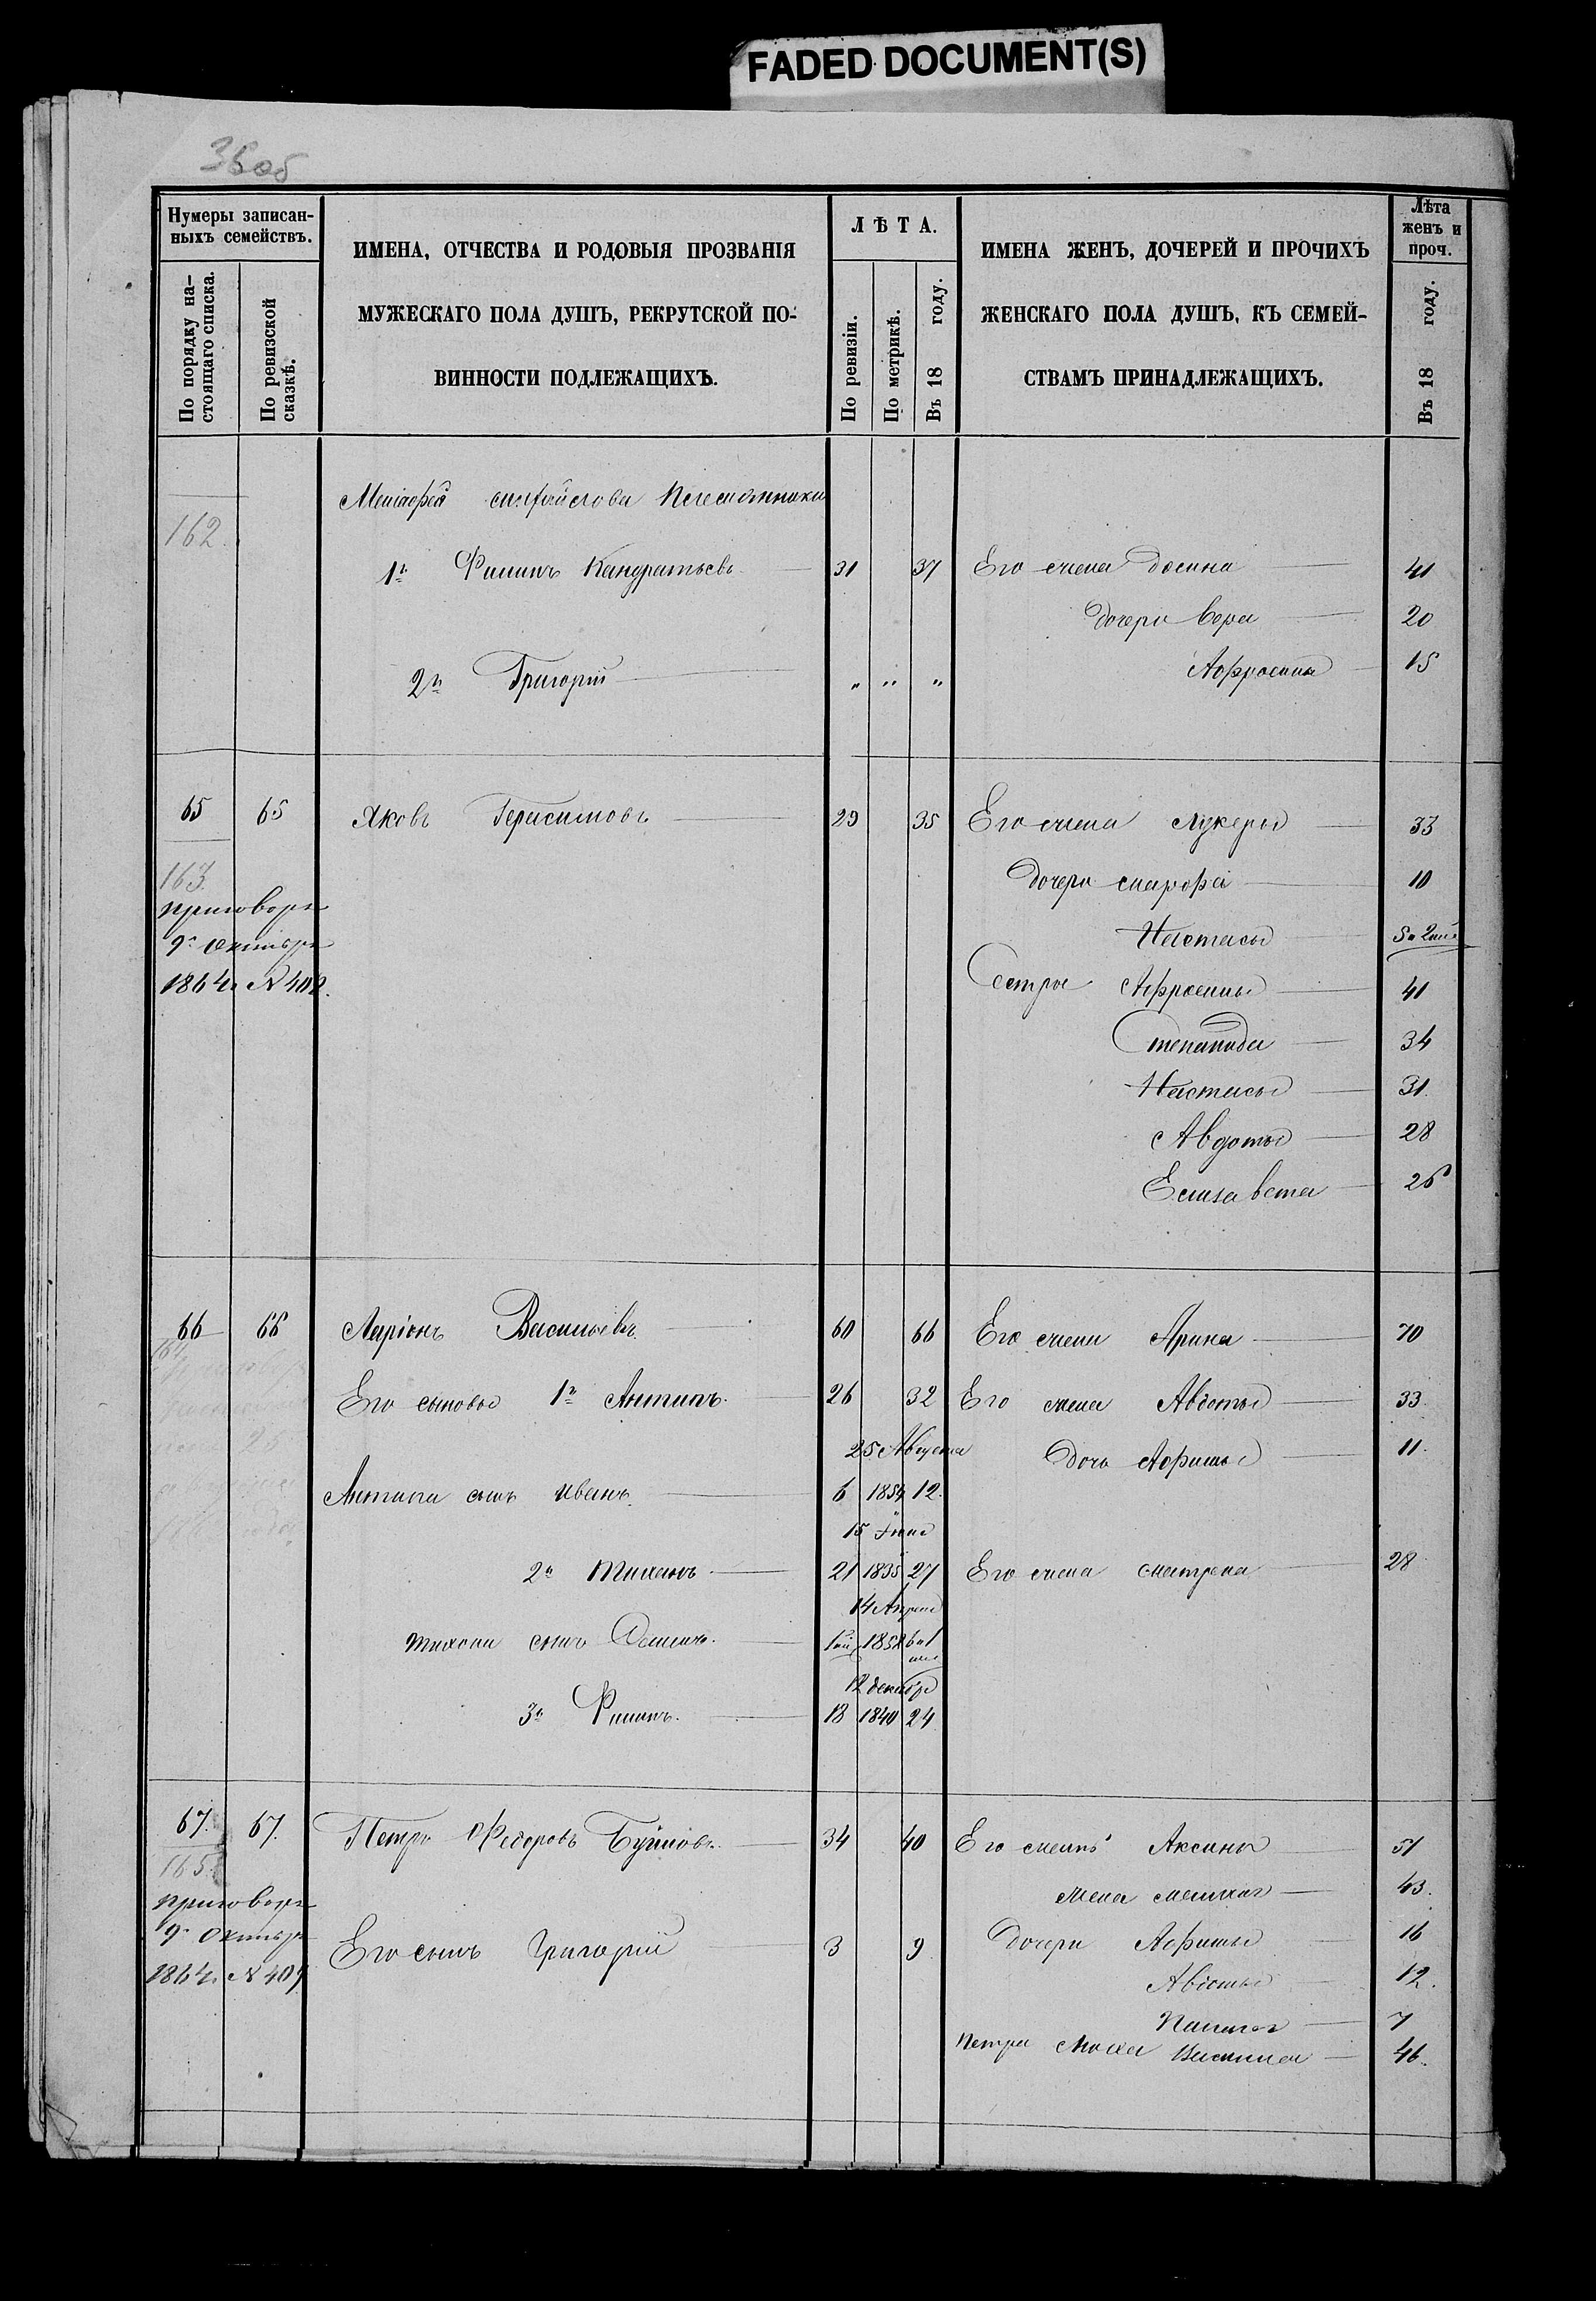 FADED DOCUMENT(S)
36об
Нумеры записан-
ныхъ семействъ.
По порядку на-
стоящаго списка.
По ревизской
сказкѣ.
ИМЕНА, ОТЧЕСТВА И РОДОВЫЯ ПРОЗВАНІЯ
МУЖЕСКАГО ПОЛА ДУШЪ, РЕКРУТСКОЙ ПО-
ВИННОСТИ ПОДЛЕЖАЩИХЪ.
ЛѢТА.
По ревизіи.
По метрикѣ.
Въ 18 году.
ИМЕНА ЖЕНЪ, ДОЧЕРЕЙ И ПРОЧИХЪ
ЖЕНСКАГО ПОЛА ДУШЪ, КЪ СЕМЕЙ-
СТВАМЪ ПРИНАДЛЕЖАЩИХЪ.
Лѣта
женъ и
проч.
Въ 18 году.
Племянники
162.
1й Филипъ Кандратьевъ 31 37 Его жена 41
дочери Вера 20
2й Григорій " " " Афросинья 15
65 65 Яковъ Герасимовъ 29 35 Его жена Лукерья 33
163.
дочери Марфа 10
приговоръ
9го Октября
Настасья 5 и 2
1864г. N 402.
Сестры Афросинья 41
Степанида 34
Настасья 31.
Авдотья 28
Елизавета 26
66 66 Ларіонъ Васильевъ 60 66 Его жена Арина 70
164
Его сыновья 1й Антипъ. 26 32 Его жена Авдотья 33.
25 Августа
дочь Афимья 11.
Антипа сынъ Иванъ. 6 1854 12.
15 Іюня
2й Тиханъ 21 1835 27 Его жена Матрена 28
14 Апреля
Тихона сынъ 1858 6 и 1
12 декабря
3й Филипъ. 13 1840 24
67. 67. Петръ Федоровъ 34 40 Его Аксинья 51
165.
жена 43.
приговоръ
9го Октября
1864г. N 409
Его сынъ Григорій 3 9
дочери Афимья 16
Авдотья 12.
7
Петра Василиса 46.